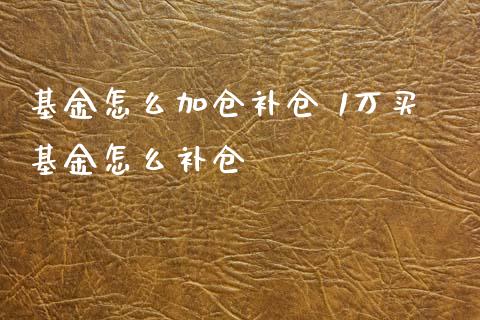 基金怎么加仓补仓 1万买
基金怎么补仓